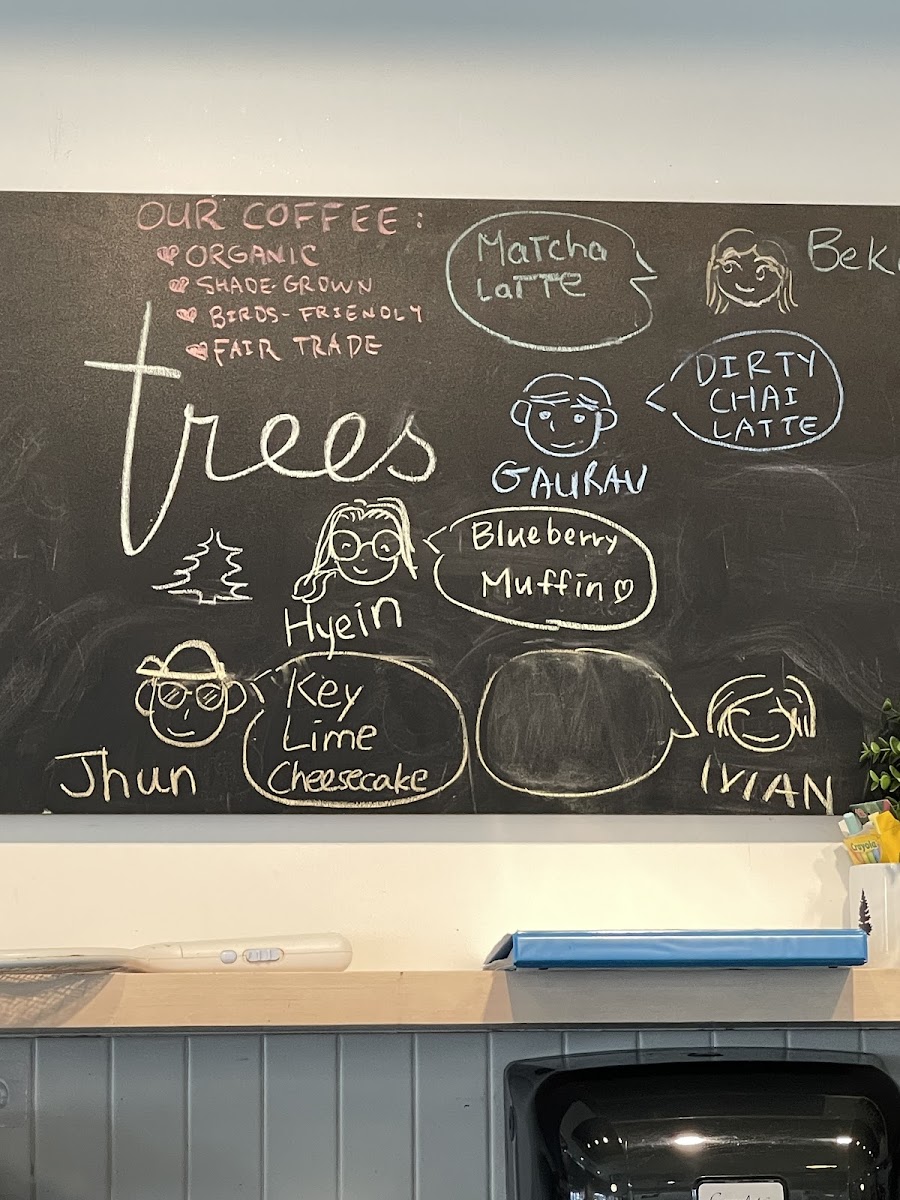 OUR COFFEE:
ORGANIC
SHADE-GROWN
BIRDS-FRIENDLY
FAIR TRADE
trees
Matcha
Latte
DIRTY
CHAI
LATTE
GAURAV
Blueberry
Muffin
Hyein
Key
Lime
Cheesecake
Jhun
IVIAN
Crayola